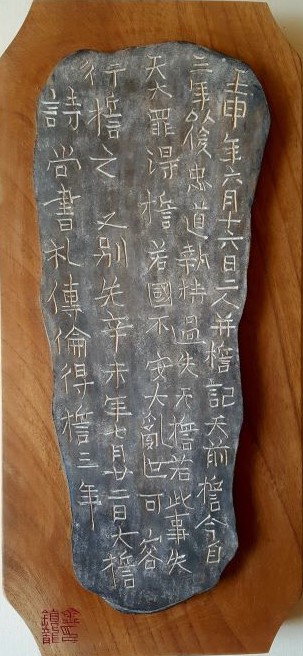 壬申年六月十六日二人并誓記天前誓今自
三年以後忠道執持過失无誓若此事失
天大罪淂誓若國不安大亂世可容
行誓之 又別先辛未年七月廿二日大誓
詩尚書礼傳倫得誓三年
金
鎭龍